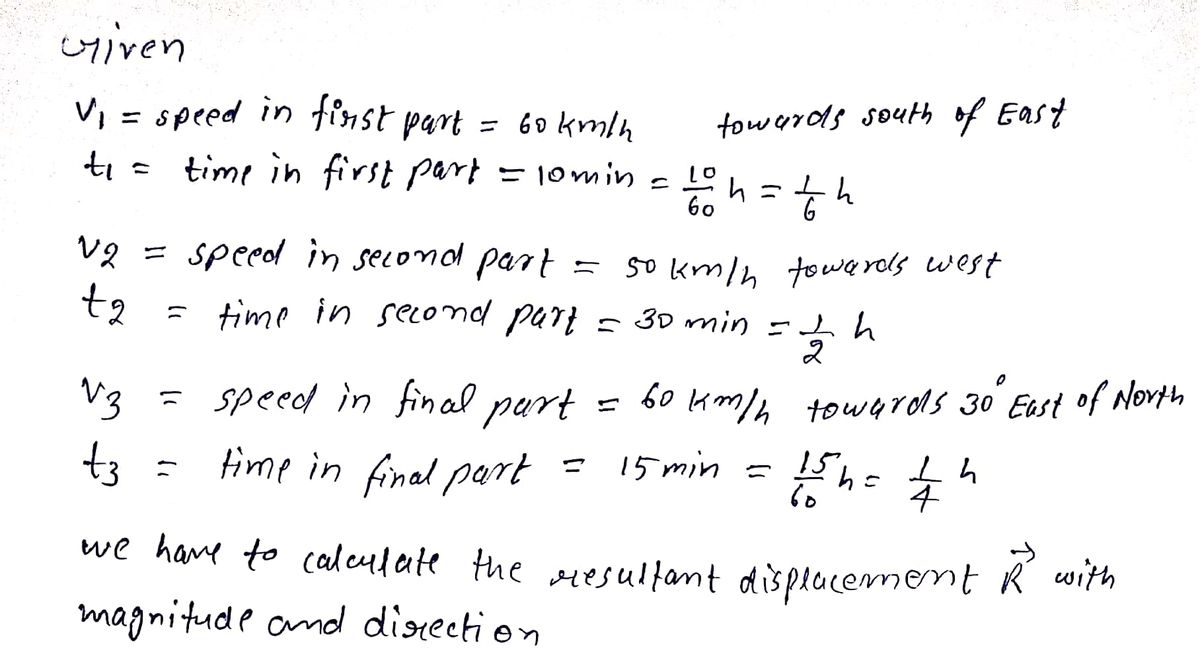 Given
V₁ = speed in first part = 60 km/h towards south of East
t₁ = time in first part = 10 min = 10/60 h = 1/6 h
V₂ = speed in second part = 50 km/h towards west
t₂ = time in second part = 30 min = 1/2 h
V₃ = speed in final part = 60 km/h towards 30° East of North
t₃ = time in final part = 15 min = 15/60 h = 1/4 h
we have to calculate the resultant displacement R⃗ with
magnitude and direction